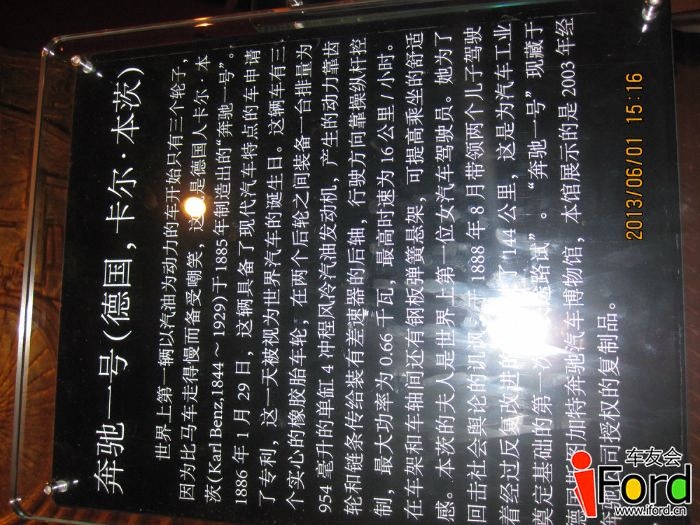 奔驰一号(德国,卡尔·本茨)
世界上第一辆以汽油为动力的车开始只有三个轮子,
因为比马车走得慢而备受嘲笑,这 是德国人卡尔·本
茨(Karl Benz,1844~1929)于1885年制造出的“奔驰一号”。
1886年1月29日,这辆具备了现代汽车特点的车申请
了专利,这一天被视为世界汽车的诞生日。这辆车有三
个实心的橡胶胎车轮,在两个后轮之间装备一台排量为
954毫升的单缸4冲程风冷汽油发动机,产生的动力靠齿
轮和链条传给装有差速器的后轴,行驶方向靠操纵杆控
制,最大功率为0.66千瓦,最高时速为16公里/小时。
在车架和车轴间还有钢板弹簧悬架,可提高乘坐的舒适
感。本茨的夫人是世界上第一位女汽车驾驶员。她为了
回击社会舆论的讥讽,于1888年8月带领两个儿子驾驶
着经过反复改进的 了144公里,这是为汽车工业
奠定基础的第一次 途路试”。“奔驰一号”现藏于
德国斯图加特奔驰汽车博物馆,本馆展示的是2003年经
公司授权的复制品。
2013/06/01 15:16
车友会
iFord
www.iford.cn